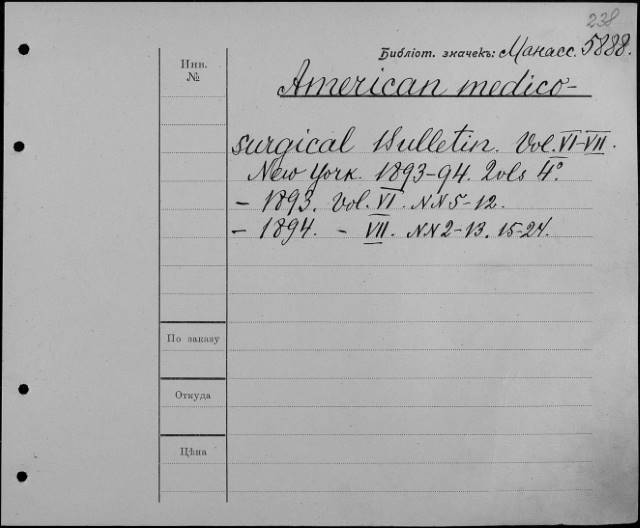 238
Библіот. значекъ: Манасс. 5888.
Инв.
№
American medico-
surgical Bulletin. Vol. VI-VII.
New York. 1893-94. 2vols 4°
- 1893. Vol. VI. NN 5-12.
- 1894. - VII. NN 2-13. 15-24.
По заказу
Откуда
Цѣна